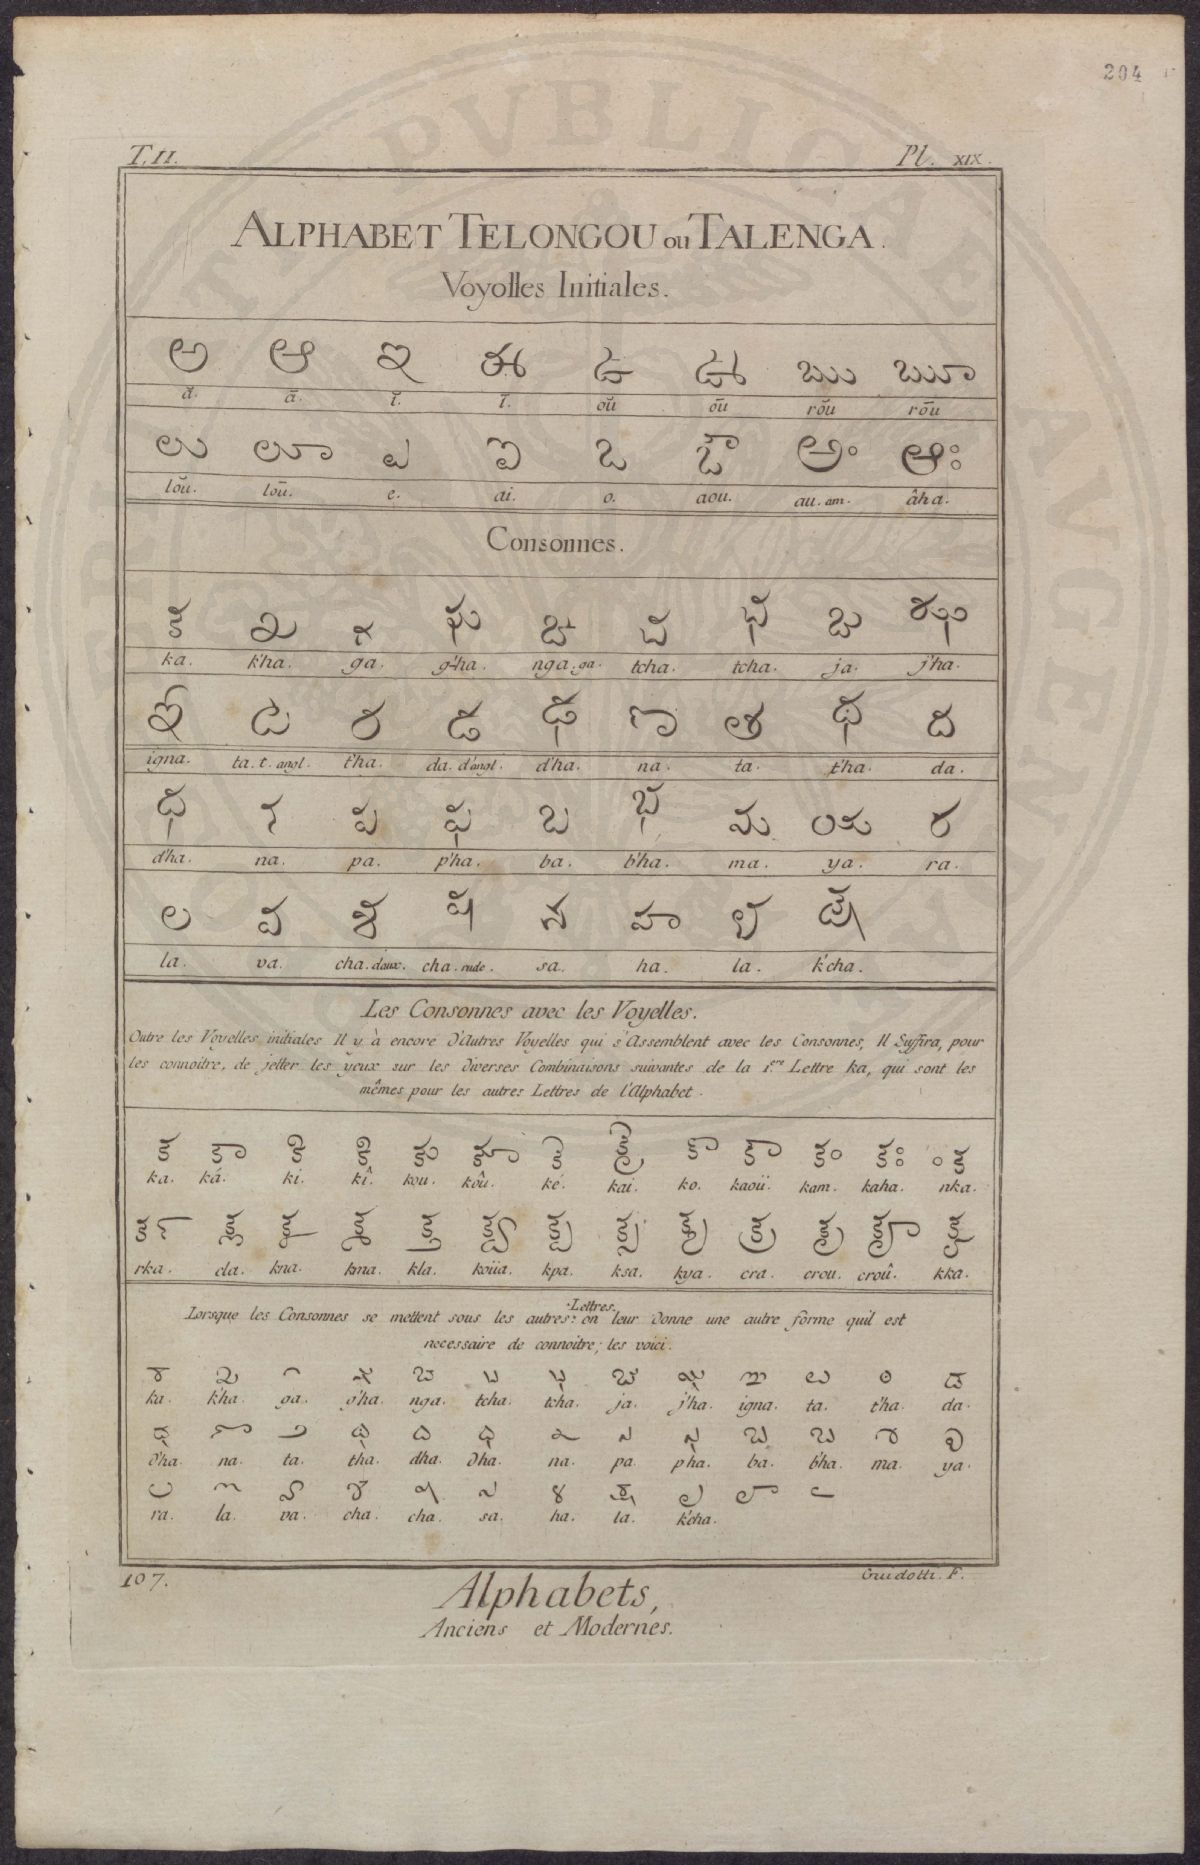 204
T.II. Pl. XIX.
ALPHABET TELONGOU ou TALENGA.
Voyolles Initiales.
అ ఆ ఇ ఈ ఉ ఊ ఋ ౠ
ă. ā. ĭ. ī. oŭ oū rŏu rōu
ఌ ౡ ఎ ఐ ఒ ఔ అం ఆః
lŏu. loū. e. ai. o. aou. au. am. âha.
Consonnes.
క ఖ గ ఘ ఙ చ ఛ జ ఝ
ka. k'ha. ga. g'ha. nga. ga. tcha. tcha. ja. j'ha.
ఞ ట ఠ డ ఢ ణ త థ ద
igna. ta. t. angl. t'ha. da. d'angl. d'ha. na. ta. t'ha. da.
ధ న ప ఫ బ భ మ య ర
d'ha. na. pa. p'ha. ba. b'ha. ma. ya. ra.
ల వ శ ష స హ ళ క్ష
la. va. cha. doux. cha. rude. sa. ha. la. k'cha.
Les Consonnes avec les Voyelles.
Outre les Voyelles initiales Il y à encore d'Autres Voyelles qui s'Assemblent avec les Consonnes, Il Suffira, pour
les connoitre, de jetter les yeux sur les diverses Combinaisons suivantes de la 1.ere Lettre ka, qui sont les
mêmes pour les autres Lettres de l'Alphabet.
క కా కి కీ కు కూ కె కై కొ కౌ కం కః
ka. ká. ki. kî. kou. koû. ké. kai. ko. kaoü. kam. kaha. nka.
rka. cla. kna. kma. kla. koüa. kpa. ksa. kya. cra. crou. croû. kka.
Lorsque les Consonnes se mettent sous les autres Lettres. on leur donne une autre forme quil est
necessaire de connoitre; les voici.
ka. k'ha. ga. g'ha. nga. tcha. tcha. ja. j'ha. igna. ta. t'ha. da.
d'ha. na. ta. tha. dha. dha. na. pa. pha. ba. b'ha. ma. ya.
ra. la. va. cha. cha. sa. ha. la. k'cha.
107. Guidotti. F.
Alphabets,
Anciens et Modernes.